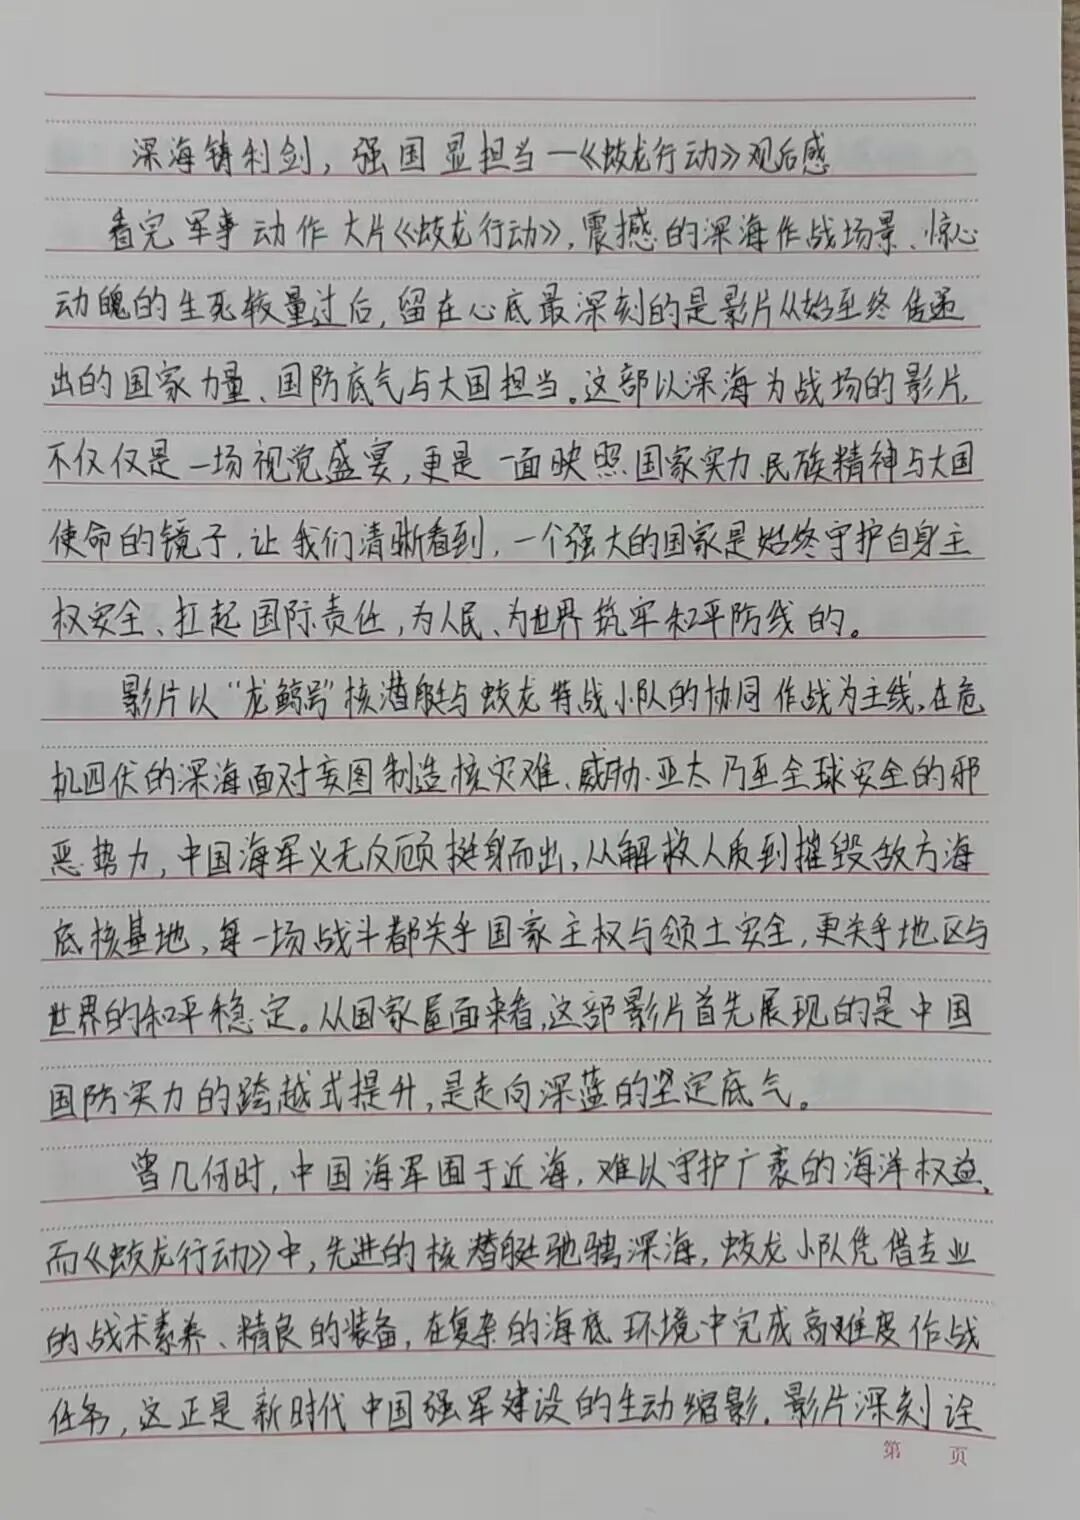 深海铸利剑，强国显担当—《蛟龙行动》观后感
看完军事动作大片《蛟龙行动》，震撼的深海作战场景、惊心
动魄的生死较量过后，留在心底最深刻的是影片从始至终传递
出的国家力量、国防底气与大国担当。这部以深海为战场的影片，
不仅仅是一场视觉盛宴，更是一面映照国家实力、民族精神与大国
使命的镜子，让我们清晰看到，一个强大的国家是始终守护自身主
权安全、扛起国际责任，为人民、为世界筑牢和平防线的。
影片以“龙鲸号”核潜艇与蛟龙特战小队的协同作战为主线，在危
机四伏的深海面对妄图制造核灾难、威胁亚太乃至全球安全的邪
恶势力，中国海军义无反顾挺身而出，从解救人质到摧毁敌方海
底核基地，每一场战斗都关乎国家主权与领土安全，更关乎地区与
世界的和平稳定。从国家层面来看，这部影片首先展现的是中国
国防实力的跨越式提升，是走向深蓝的坚定底气。
曾几何时，中国海军囿于近海，难以守护广袤的海洋权益，
而《蛟龙行动》中，先进的核潜艇驰骋深海，蛟龙小队凭借专业
的战术素养、精良的装备，在复杂的海底环境中完成高难度作战
任务，这正是新时代中国强军建设的生动缩影。影片深刻诠
第 页